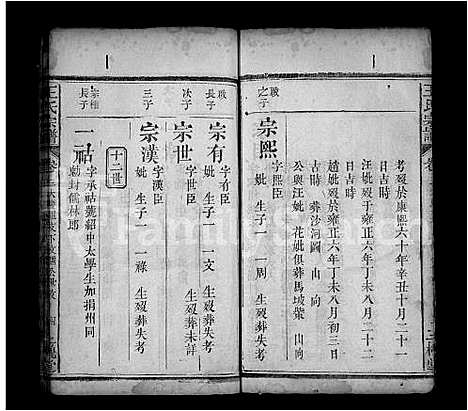 考歿於康熙六十年辛丑十月二十一
日吉時
汪妣歿于雍正六年丁未八月二十二
日吉時
趙妣歿於雍正六年丁未八月初三日
吉時 葬沙河圖 山 向
公與汪妣 花妣俱葬馬坡棠 山向
之子
宗熙 字熙臣
妣 生子一 一周 生歿葬失考
長子
宗有 字有臣
妣 生子一 一文 生歿葬失考
次子
宗世 字世臣
妣 生歿葬未詳
三子
宗漢 字漢臣
妣 生子一 一祿 生歿葬失考
十二世
宗
長子
一祜 字承祜號紹申太學生加捐州同
勅封儒林郎
王氏宗譜